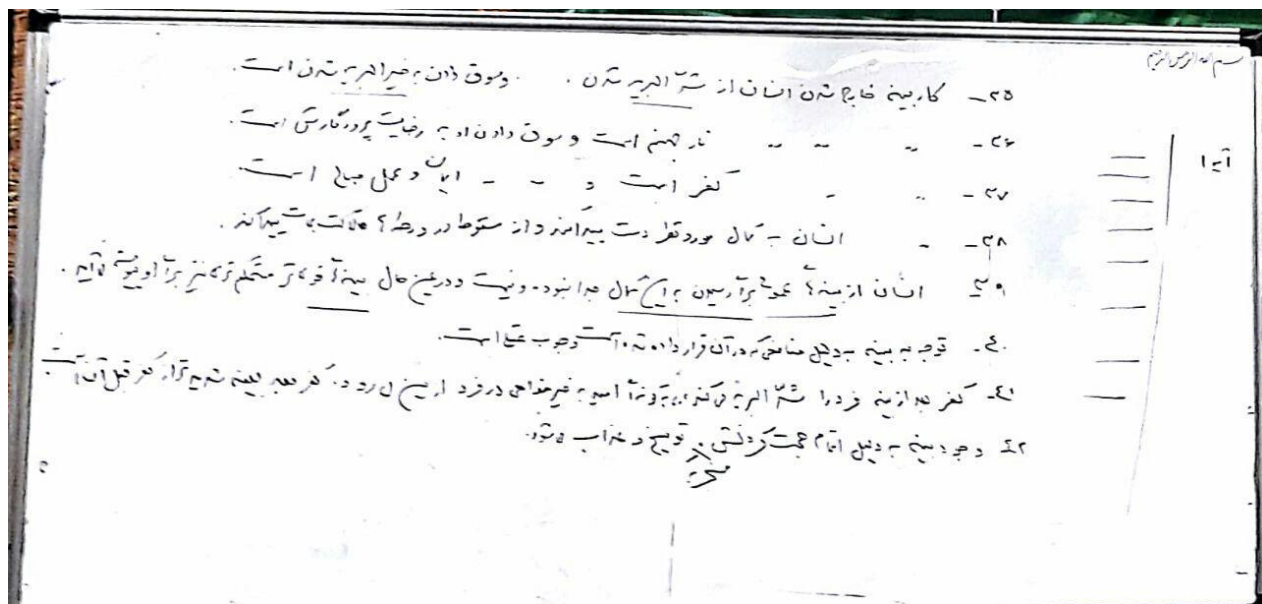 بسم الله الرحمن الرحیم
آیه ۱
۳۵- کار بینه خارج شدن انسان از شرّ البریه شدن . و سوق دادن به خیر البریه شدن است.
۳۶- " " " نار جهنم است و سوق دادن او به رضایت پروردگارش است.
۳۷- " " کفر است و - - ایمان و عمل صالح است.
۳۸- - انسان به کمال مورد نظر دست پیدا کند و از سقوط در ورطه‌ی هلاکت نجات پیدا کند.
۳۹- انسان از بینه‌ای عموماً برای رسیدن به این کمال جدا نبوده و نیست و در عین حال بینه‌ای قوی‌تر متحکم‌تری نیز برای او می‌آید.
۴۰- توجه به بینه به دلیل منافعی که در آن قرار داده شده است وجوب عقلی است.
۴۱- کفر بعد از بینه فرد را شرّ البریه می‌کند امید به خیرخواهی در فرد از بین می‌رود. کفر بعد بینه شدیدتر از کفر قبل آن است
۴۲- وجود بینه به دلیل اتمام حجت کردنش منجر به توبیخ و عذاب می‌شود.